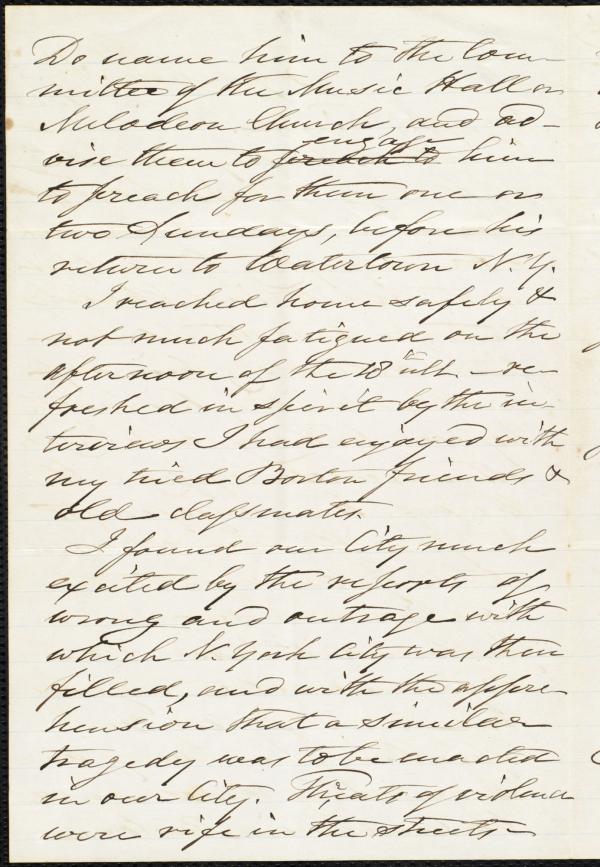 Do name him to the Com-
mittee of the Music Hall or
Melodeon Church, and ad-
engage
vise them to preach to him
to preach for them one or
two Sundays, before his
return to Watertown N.Y.
I reached home safely &
not much fatigued on the
afternoon of the 18th ult. – re-
freshed in spirit by the in-
terviews I had enjoyed with
my tried Boston friends &
old classmates.
I found our City much
excited by the reports of
wrong and outrage with
which N. York City was then
filled, and with the appre-
hension that a similar
tragedy was to be enacted
in our City. Threats of violence
were rife in the streets –